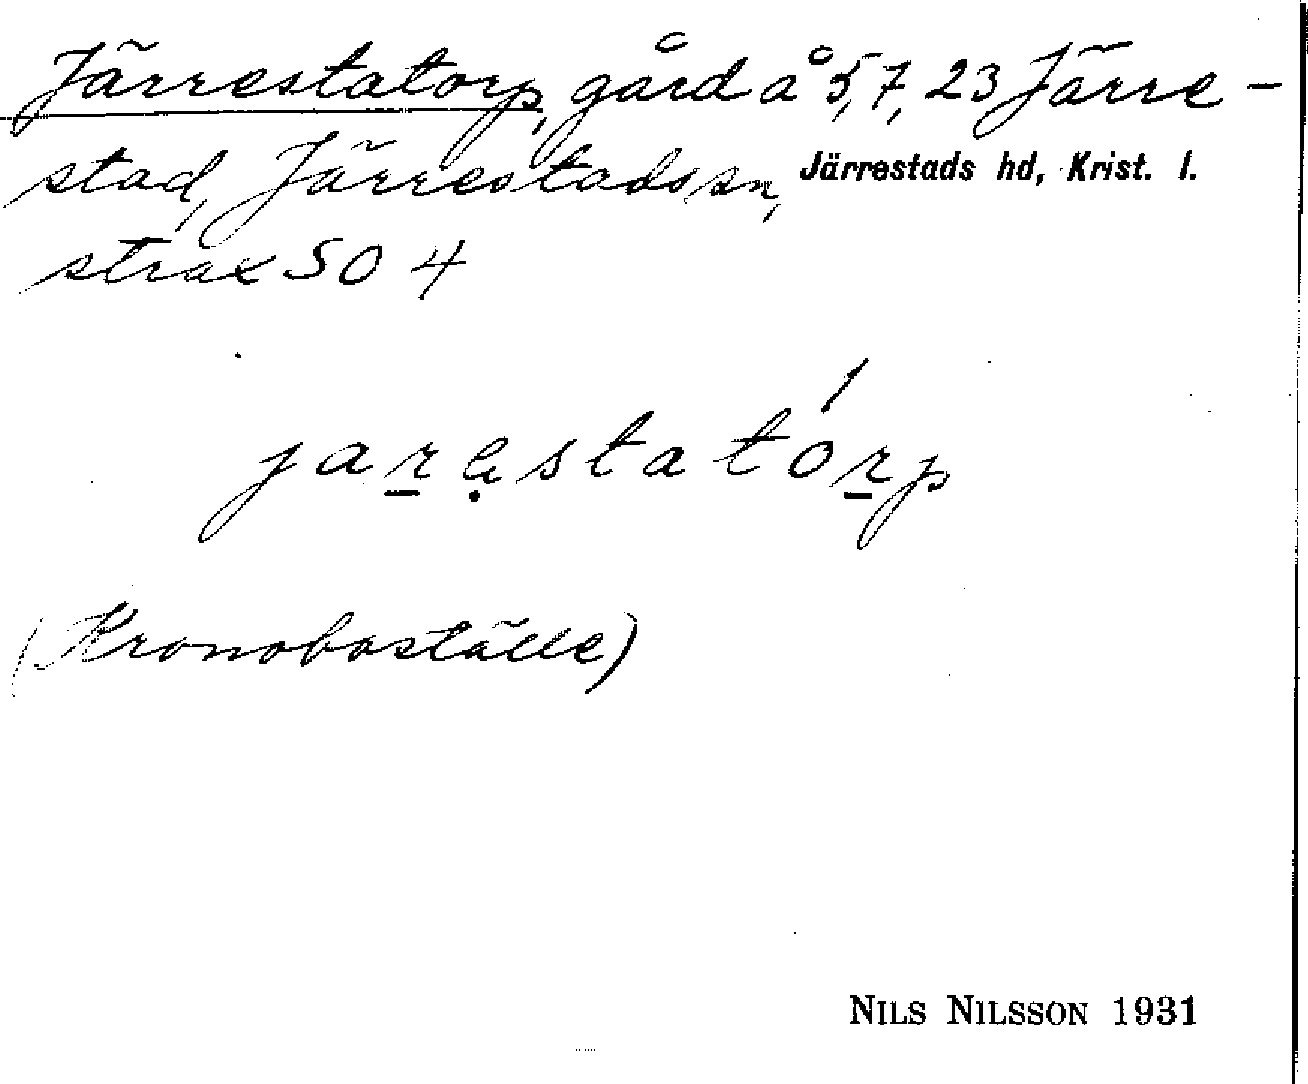 Järrestatorp, gård å 5, 7, 23 Järre-
stad, Järrestads sn, Järrestads hd, Krist. l.
strax SO 4
jar̲ẹstatórp
(Kronoboställe)
NILS NILSSON 1931